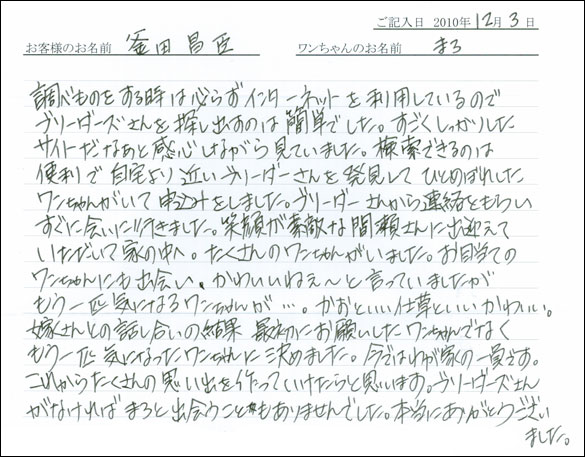 ご記入日 2010年12月3日
お客様のお名前 釜田昌臣 ワンちゃんのお名前 まろ
調べものをする時は必らずインターネットを利用しているので
ブリーダーズさんを探し出すのは簡単でした。すごくしっかりした
サイトだなあと感心しながら見ていました。検索できるのは
便利で自宅より近いブリーダーさんを発見してひとめぼれした
ワンちゃんがいて申込みをしました。ブリーダーさんから連絡をもらい
すぐに会いに行きました。笑顔が素敵な間瀬さんに出迎えて
いただいて家の中へ。たくさんのワンちゃんがいました。お目当ての
ワンちゃんにも出会い、かわいいねぇ〜と言っていましたが
もう一匹気になるワンちゃんが…。かおといい仕草といいかわいい。
嫁さんとの話し合いの結果 最初にお願いしたワンちゃんでなく
もう一匹気になったワンちゃんに決めました。今ではわが家の一員です。
これからたくさんの思い出を作っていけたらと思います。ブリーダーズさん
がなければまろと出会うこともありませんでした。本当にありがとうござい
ました。